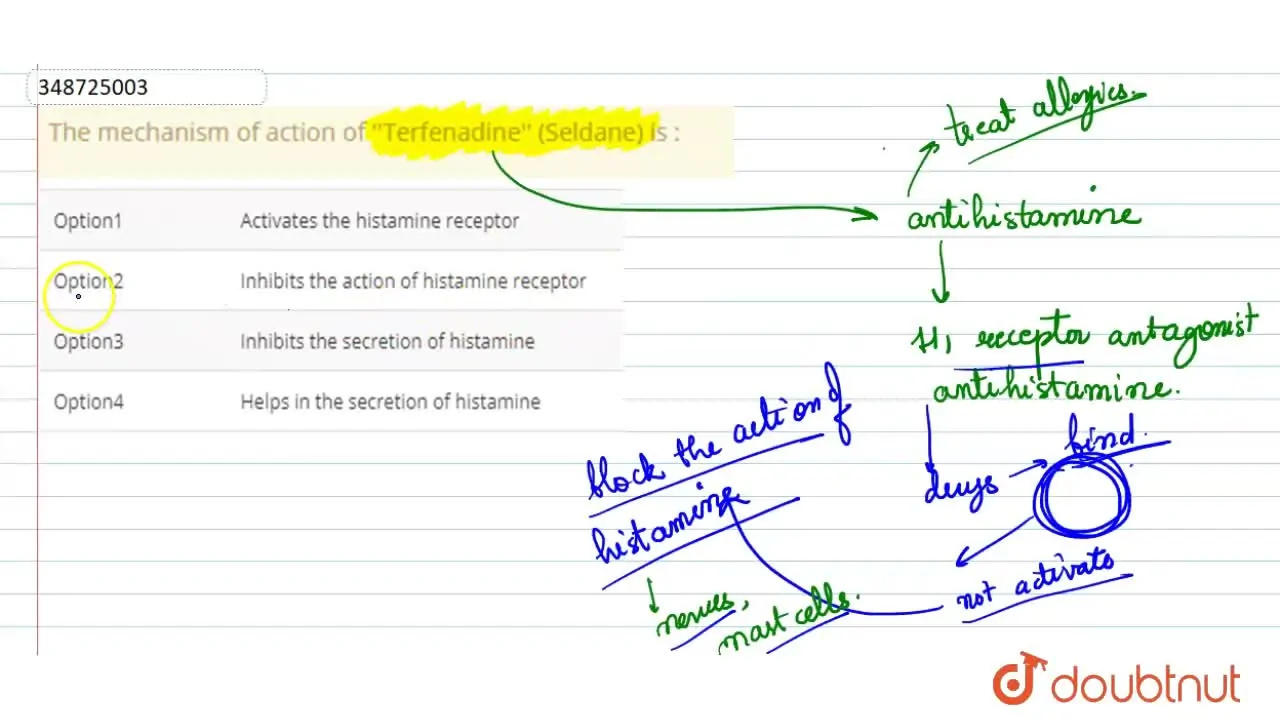 348725003
The mechanism of action of "Terfenadine" (Seldane) is :
Option1 Activates the histamine receptor
Option2 Inhibits the action of histamine receptor
Option3 Inhibits the secretion of histamine
Option4 Helps in the secretion of histamine
treat allergies.
antihistamine
H1 receptor antagonist
antihistamine.
drugs
bind.
not activate
block the action of
histamine
nerves,
mast cells.
doubtnut